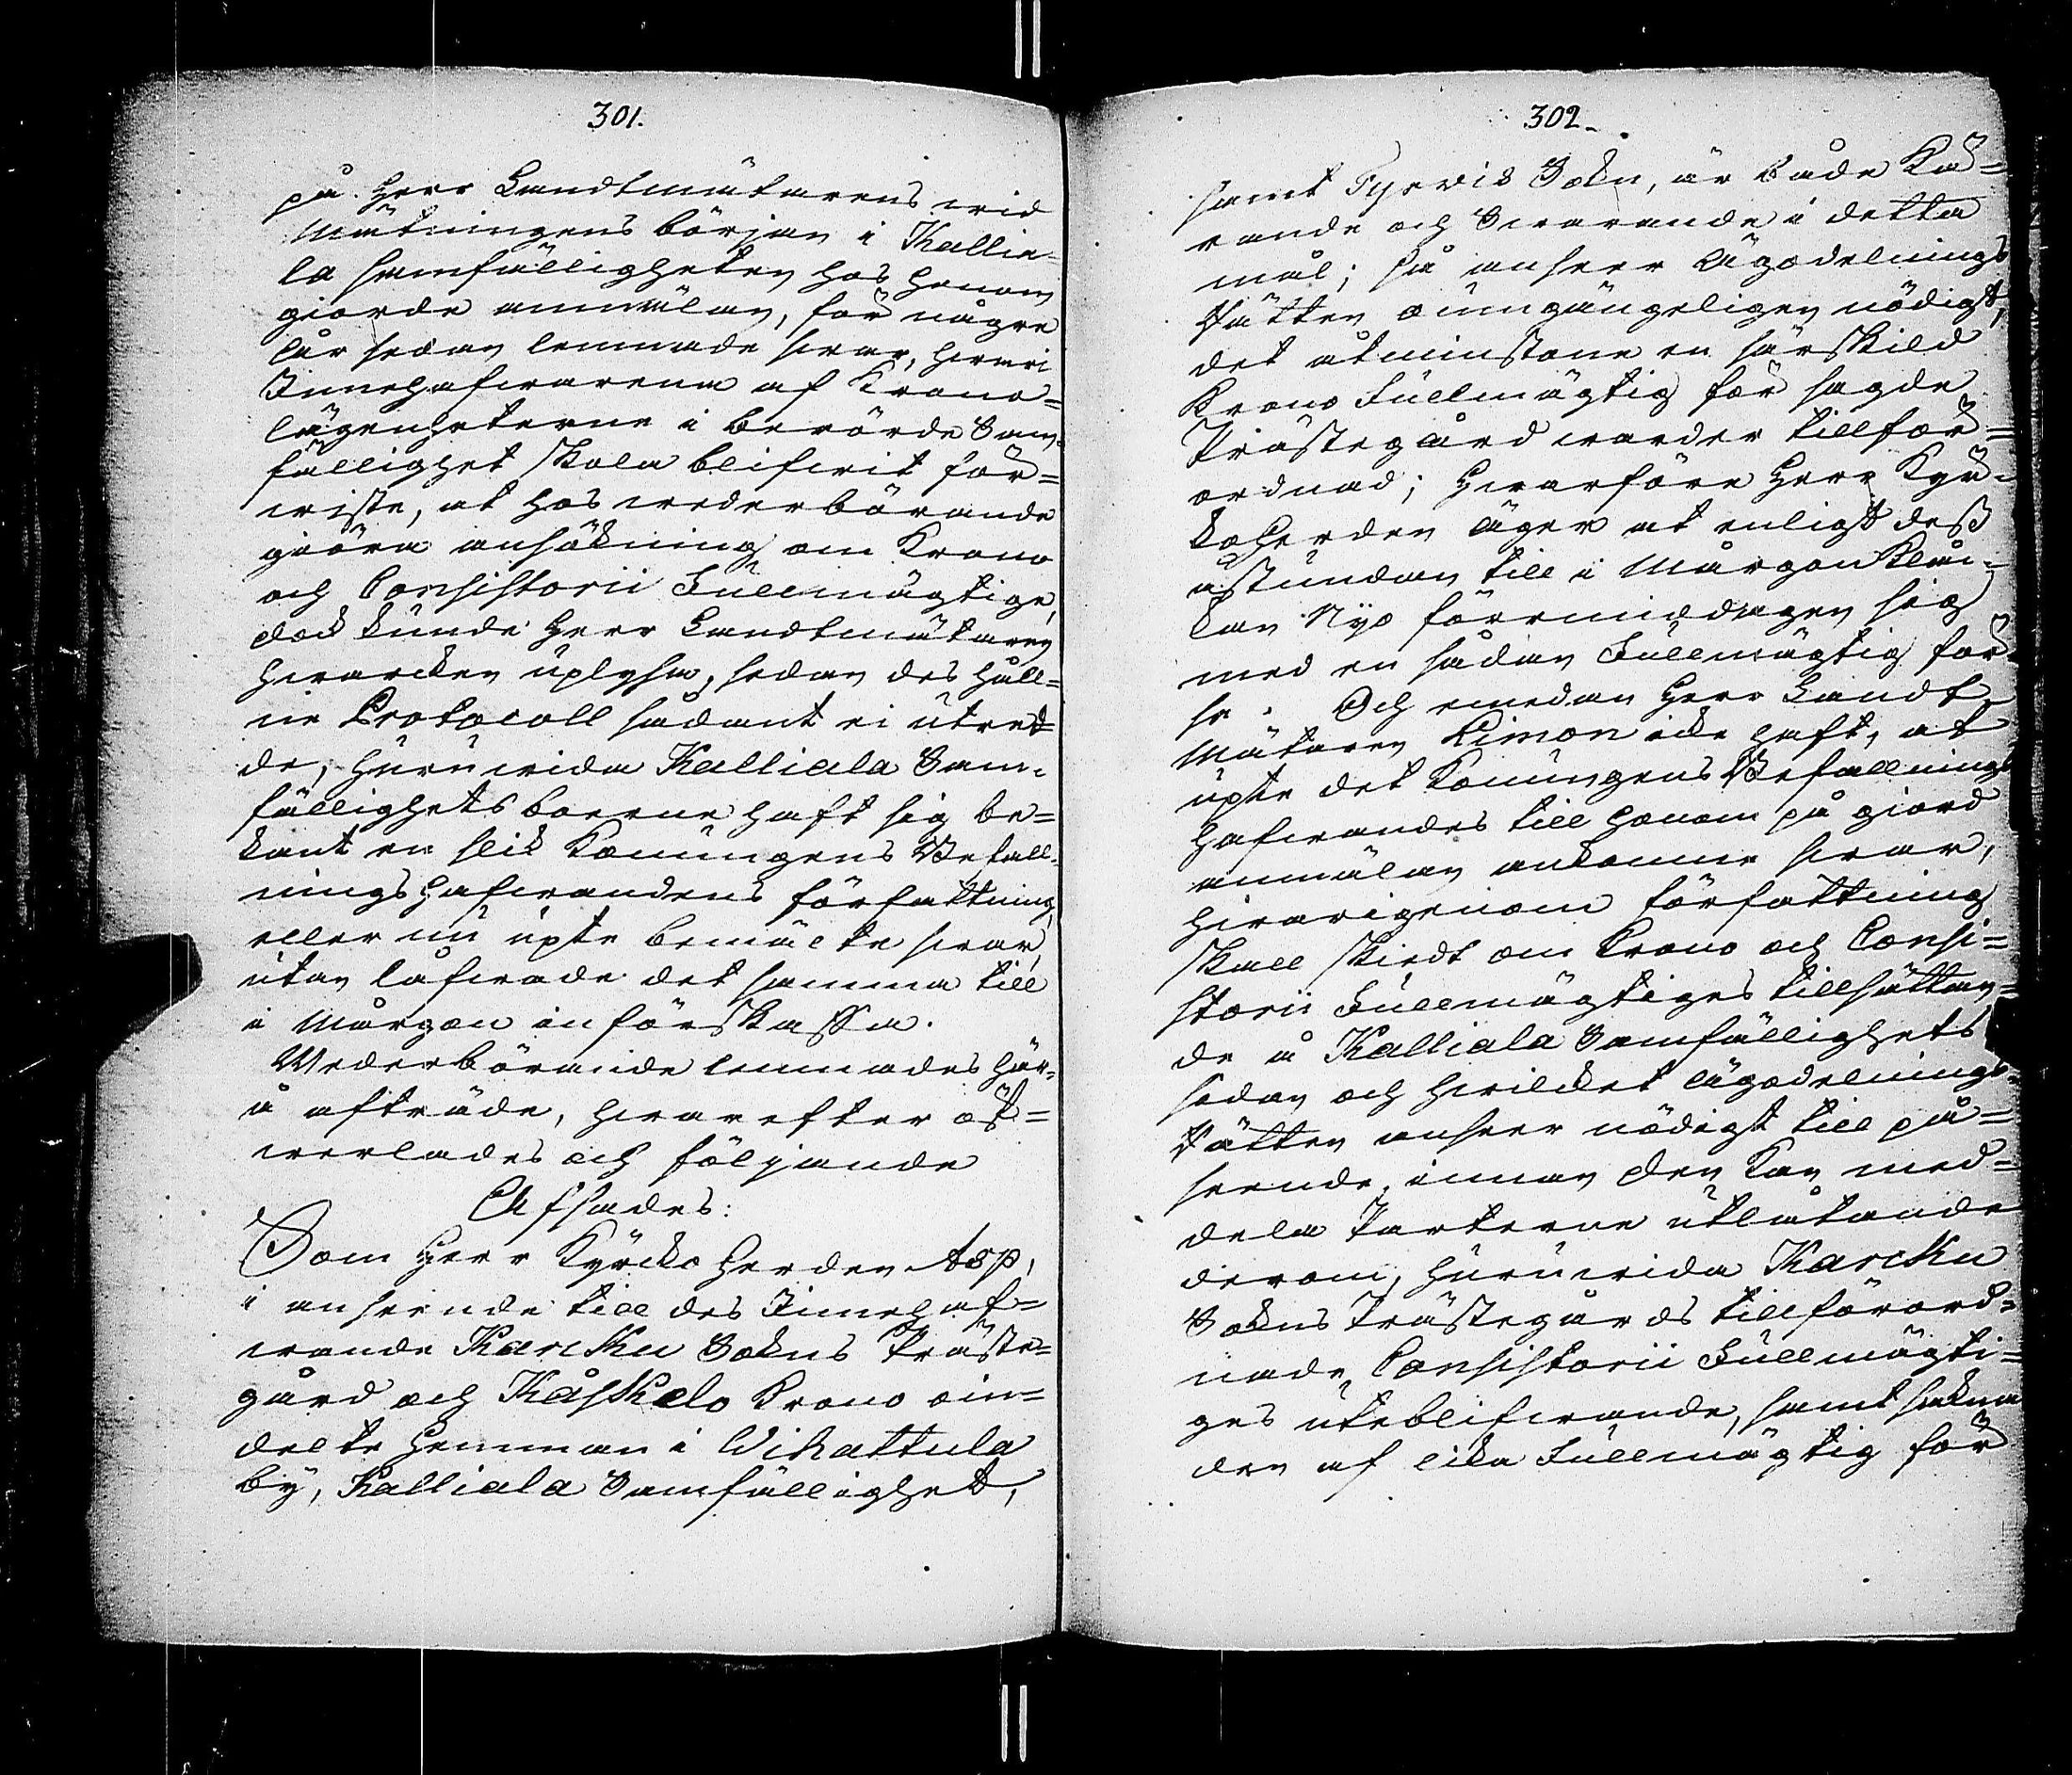 301.
på Herr Landtmätarens wid
Mätningens början i Kallia-
la samfälligheten hos honom
giorde anmälan, för någre
år sedan lemnade swar, hwari
Innehafwarena af Krono-
lägenheterne i berörde Sam-
fällighet skola blifwit för-
wiste, at hos wederbörande
giöra ansökning om Krono
och Consistorii Fullmägtige,
dock kunde Herr Landtmätaren
hwarcken uplysa, sedan des håll-
ne Protocoll sådant ei utred-
de, huruwida Kalliala Sam-
fällighetsboerne haft sig be-
kant en slik Konungens Befall-
ningshafwandens författning,
eller nu upte bemälte swar,
utan låfwade det samma till
i mårgon införskaffa.
Wederbörande lemnades här-
å afträde, hwarefter öf-
werlades och följande
Afsades:
Som Herr Kyrckoherden Asp,
i anseende till des Innehaf-
wande Karcku Sokns Präste-
gård och Kåskelo Krono oin-
delte Hemman i Wihattula
by, Kalliala Samfällighet,
302.
samt Tyrwis Sokn, är både Kä-
rande och Swarande i detta
mål; så anser Ägodelnings
Rätten oumgängeligen nödigt,
det åtminstone en särskild
Krono Fullmägtig för sagde
Prästegård warder tillför-
ordnad; Hwarföre Herr Kyr-
koherden äger at enligt dess
åstundan till i Mårgon Klåc-
kan Nyo förrmiddagen sig
med en sådan Fullmägtig för-
se. Och emedan Herr Landt-
mätaren Limon icke haft, at
upte det Konungens Befallnings
hafwandes till honom på giord
anmälan ankomne swar,
hwarigenom författning
skall skiedt om Krono och Consi-
storii Fullmägtiges tillsättan-
de å Kalliala Samfällighets
sedan och hwilcket Ägodelnings-
Rätten anser nödigt till på-
seende, innan den kan med-
dela Parterne utlåtande
derom, huruwida Karcku
Sokns Prästegårds tillförord-
nade Consistorii Fullmägti-
ges uteblifwande, samt sakna-
den af lika Fullmägtig för